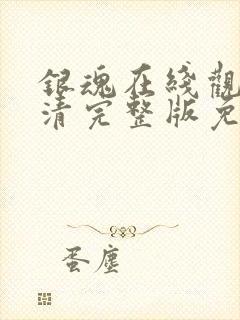 銀魂在綫觀
清完整版免
蛋塵